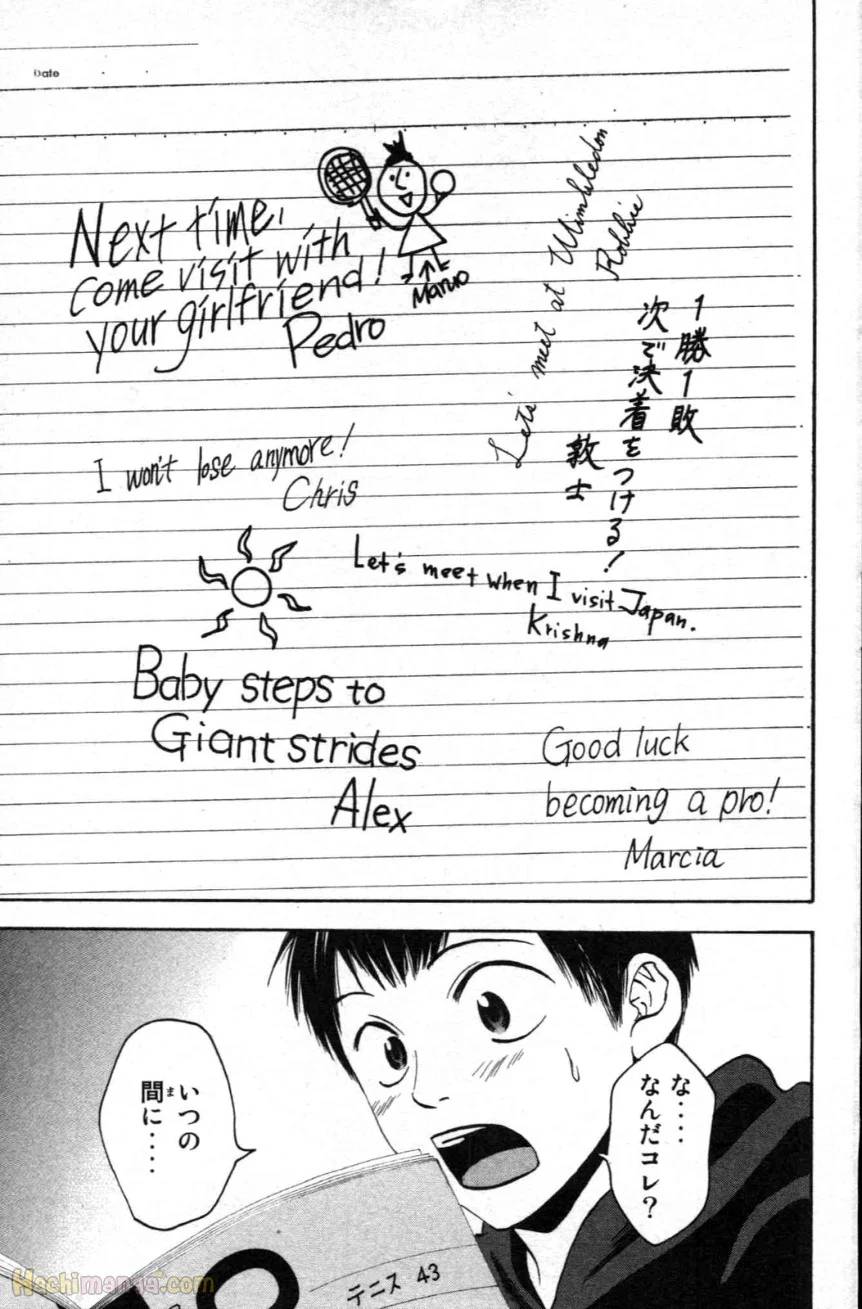 Date
Next time,
come visit with
your girlfriend!
Pedro
Mario
Let's meet at Wimbledon
Robbie
1勝1敗
次で決着をつける!
敦士
I won't lose anymore!
Chris
Let's meet when I visit Japan.
Krishna
Baby steps to
Giant strides
Alex
Good luck
becoming a pro!
Marcia
な‥‥
なんだコレ?
いつの
間に‥‥
ま
テニス 43
Hachimanga.com